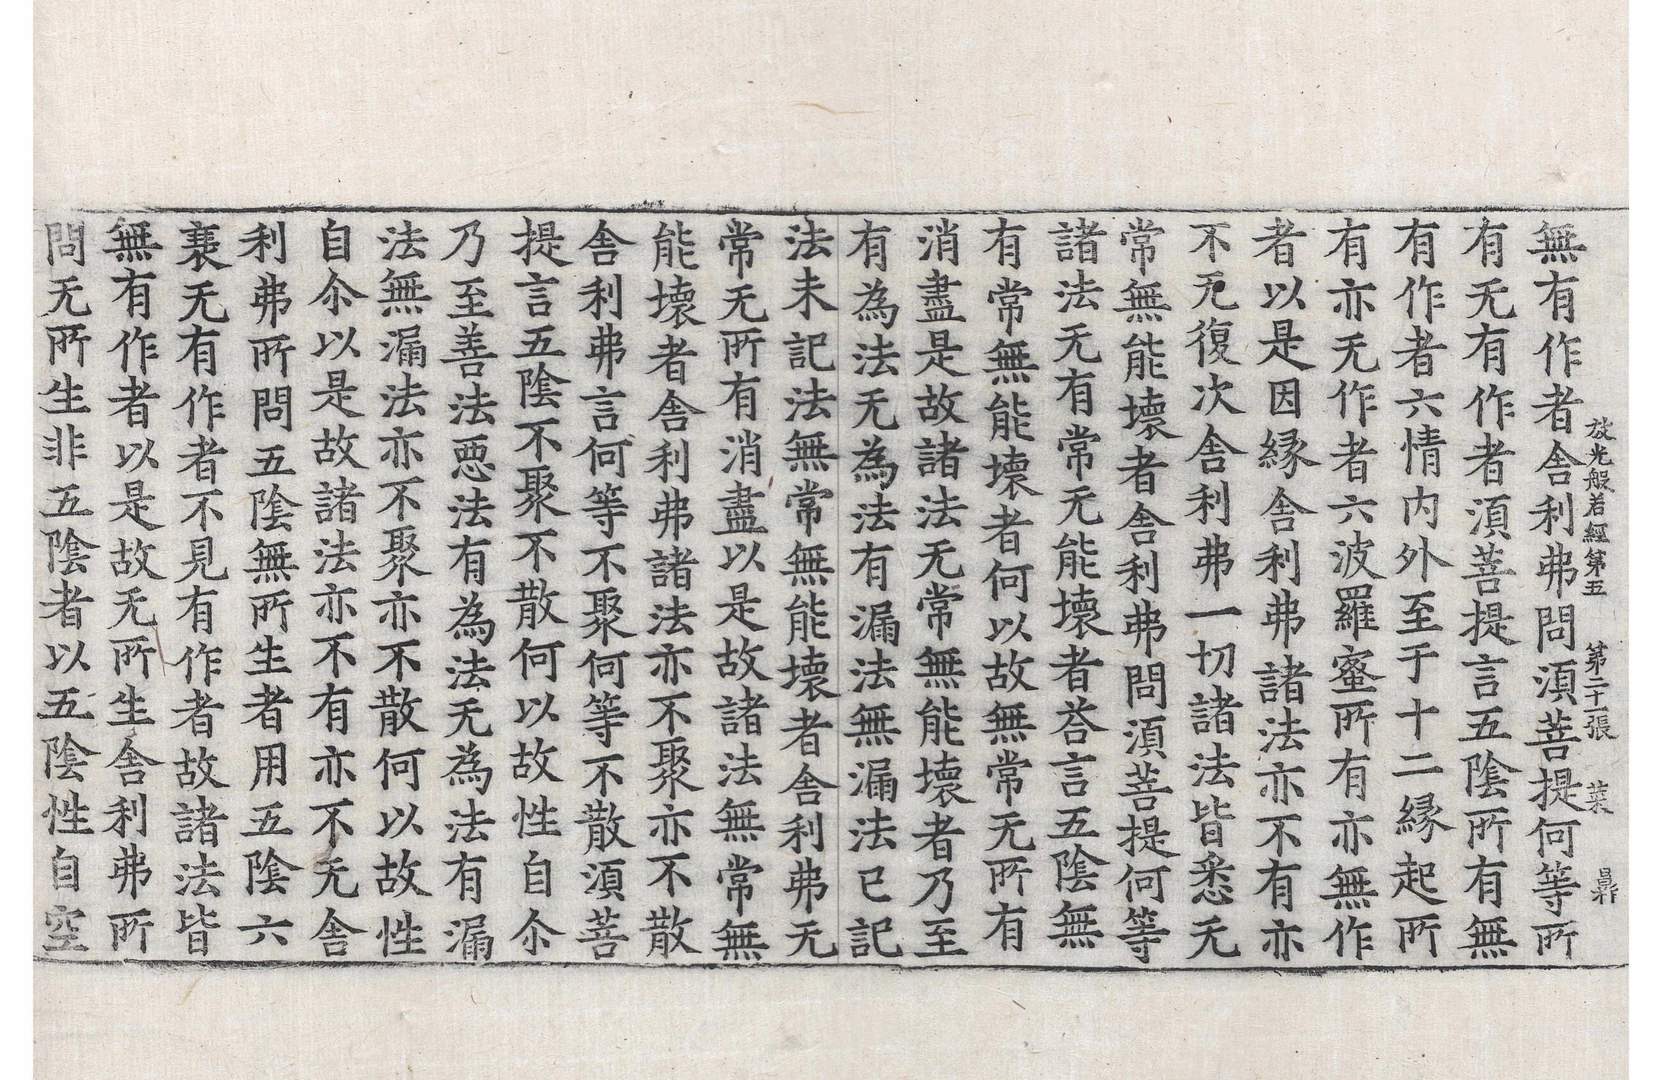 放光般若經第五　第二十一張　菜
無有作者舍利弗問湏菩提何等所
有无有作者湏菩提言五陰所有無
有作者六情内外至于十二縁起所
有亦无作者六波羅蜜所有亦無作
者以是因縁舍利弗諸法亦不有亦
不无復次舍利弗一切諸法皆悉无
常無能壞者舍利弗問湏菩提何等
諸法无有常无能壞者荅言五陰無
有常無能壞者何以故無常无所有
消盡是故諸法无常無能壞者乃至
有為法无為法有漏法無漏法已記
法未記法無常無能壞者舍利弗无
常无所有消盡以是故諸法無常無
能壞者舍利弗諸法亦不聚亦不散
舍利弗言何等不聚何等不散湏菩
提言五陰不聚不散何以故性自尒
乃至善法悪法有為法无為法有漏
法無漏法亦不聚亦不散何以故性
自尒以是故諸法亦不有亦不无舍
利弗所問五陰無所生者用五陰六
衰无有作者不見有作者故諸法皆
無有作者以是故无所生舍利弗所
問无所生非五陰者以五陰性自空